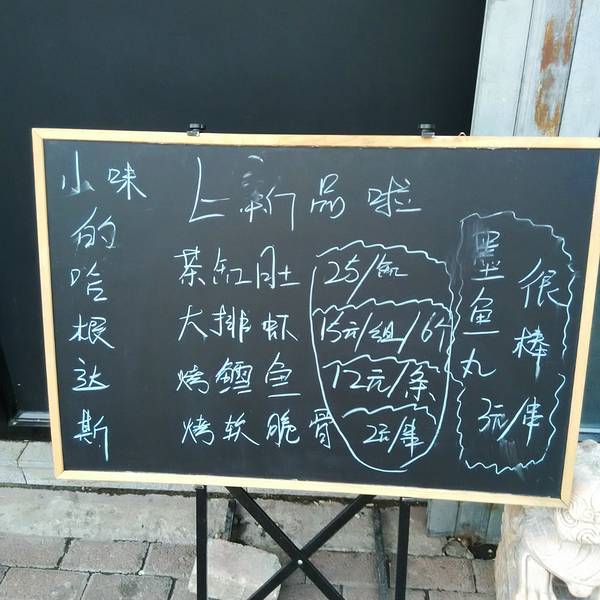 小味
的
哈
根
达
斯
上新品啦
茶缸肚 25/缸
大排虾 15元/组/6个
烤鳕鱼 12元/条
烤软脆骨 2元/串
墨鱼丸
很棒
3元/串